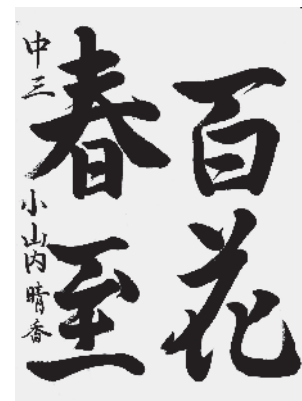 百花
春至
中三 小山内晴香